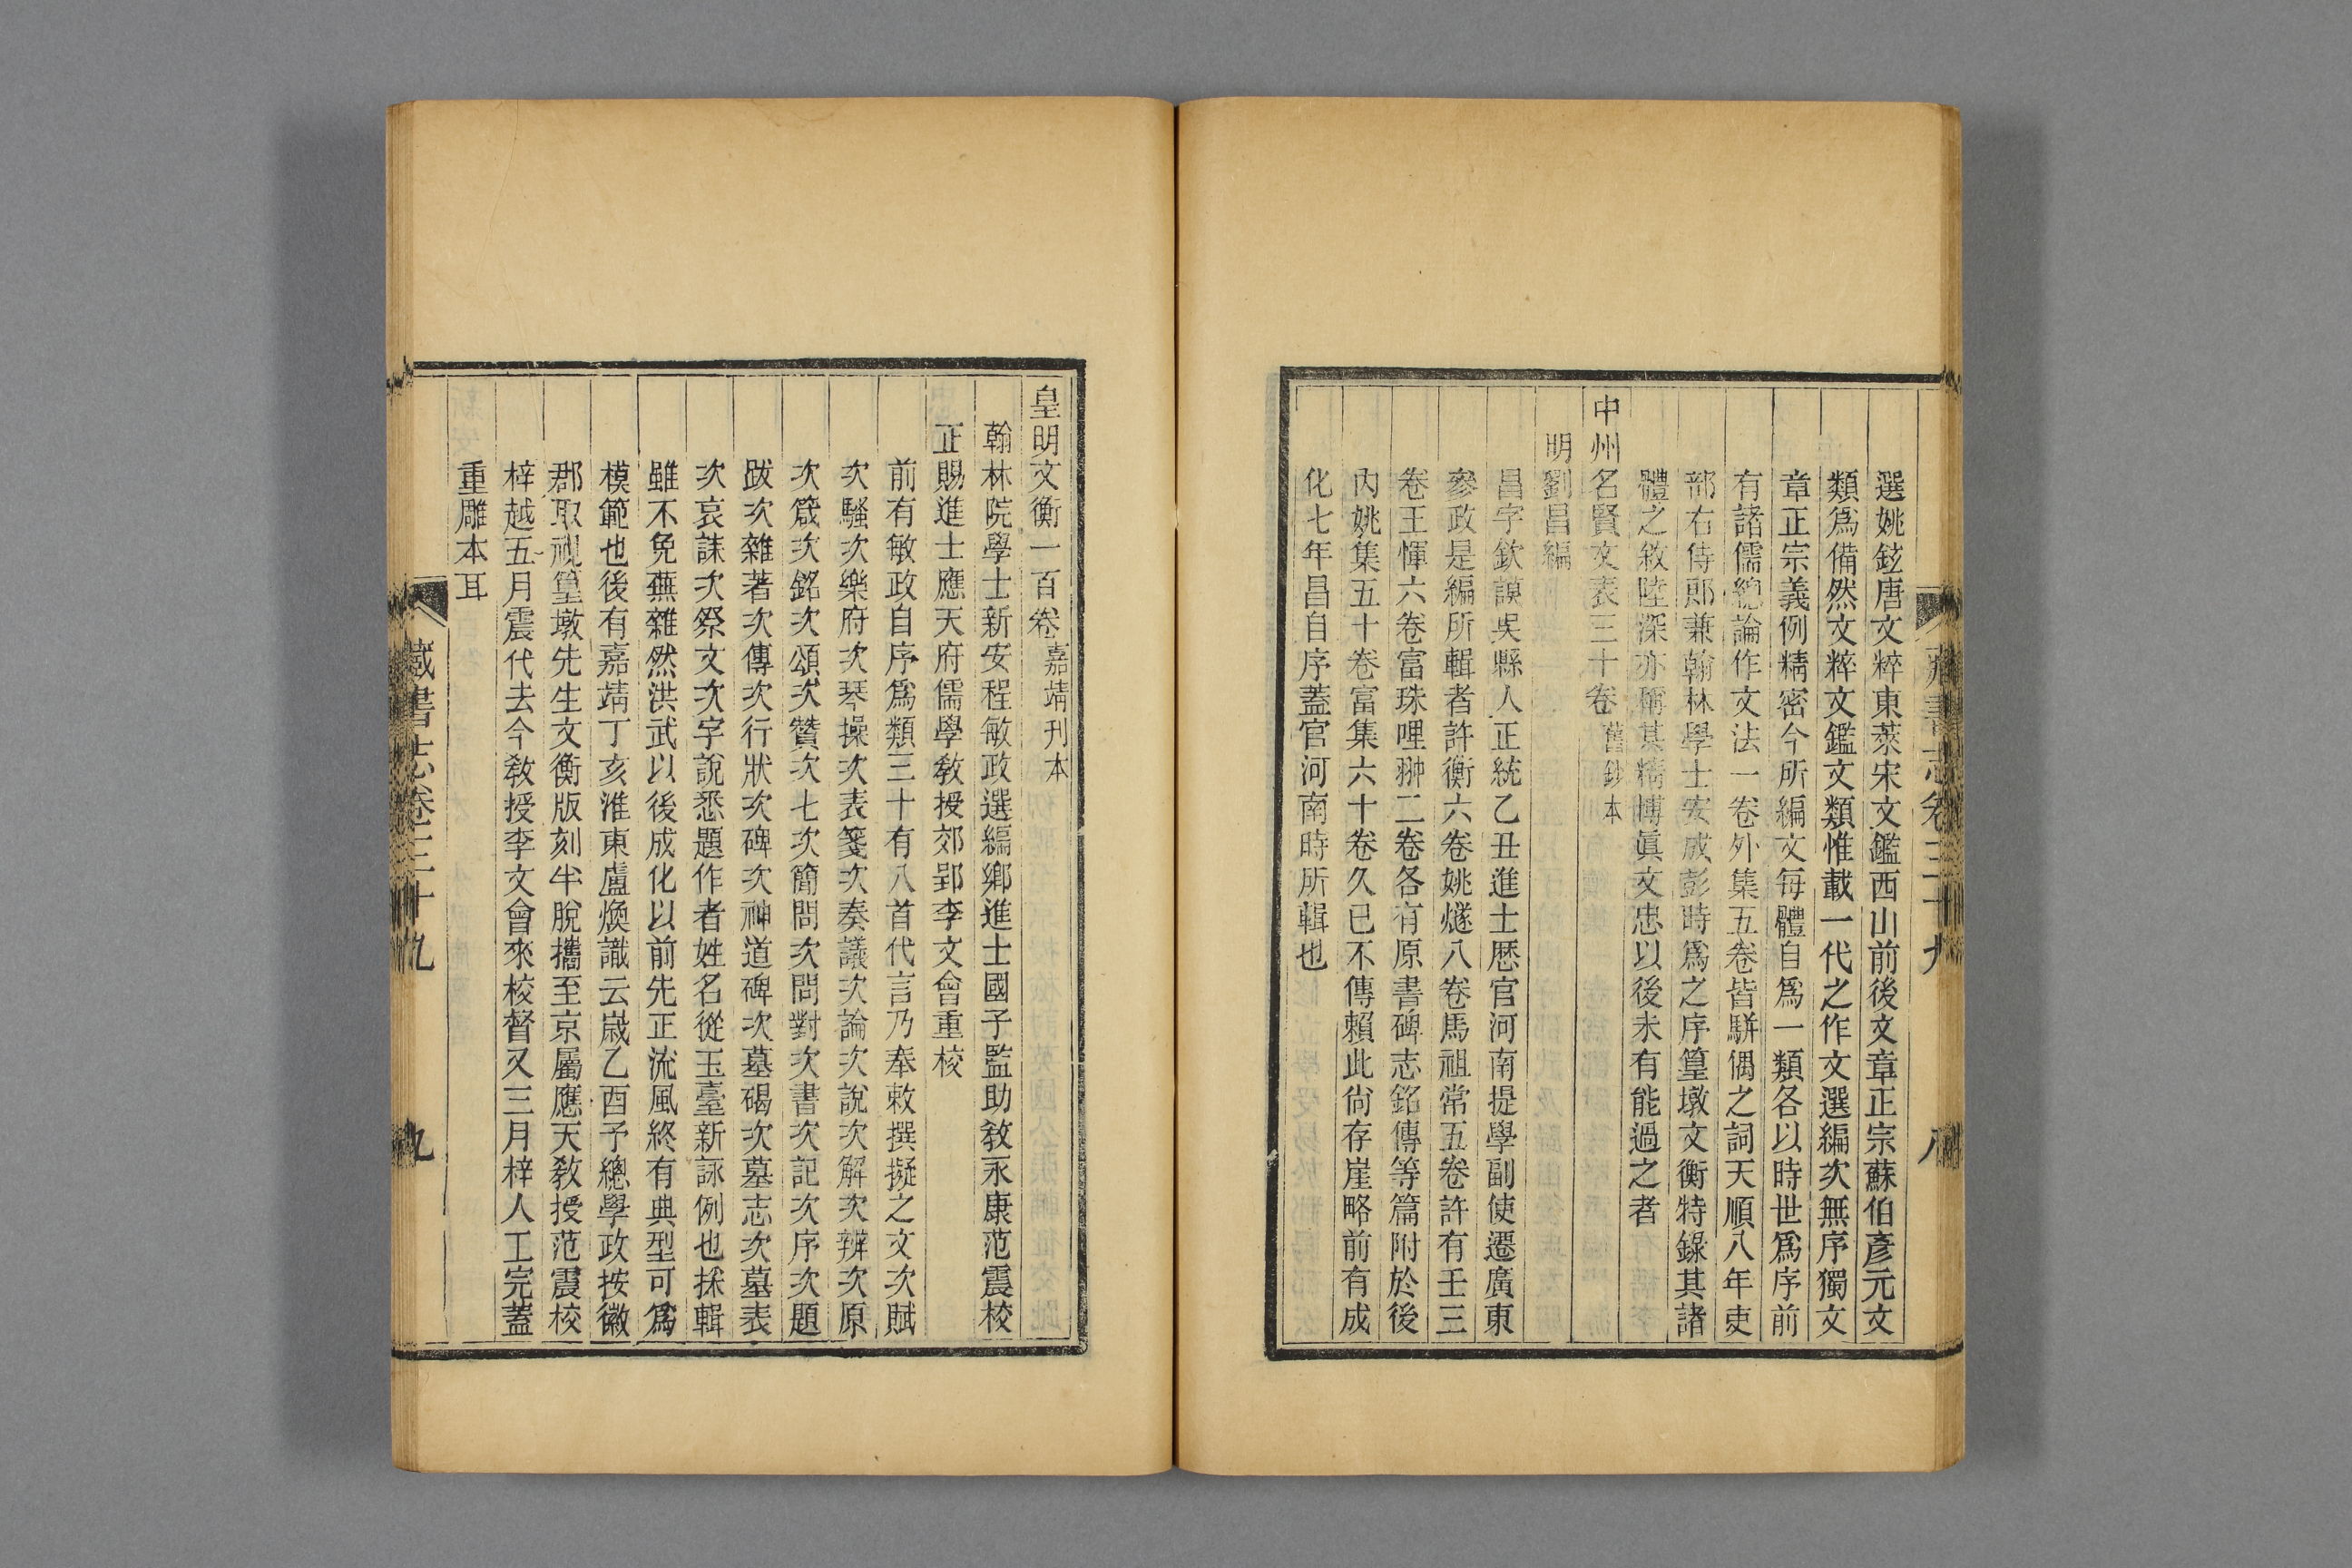 藏書志卷三十九
八
選姚鉉唐文粹東萊宋文鑑西山前後文章正宗蘇伯彥元文
類爲備然文粹文鑑文類惟載一代之作文選編次無序獨文
章正宗義例精密今所編文每體自爲一類各以時世爲序前
有諸儒總論作文法一卷外集五卷皆駢偶之詞天順八年吏
部右侍郎兼翰林學士安成彭時爲之序篁墩文衡特錄其諸
體之敘陸深亦稱其精博眞文忠以後未有能過之者
中州名賢文表三十卷舊鈔本
明劉昌編
昌字欽謨吳縣人正統乙丑進士歷官河南提學副使遷廣東
參政是編所輯者許衡六卷姚燧八卷馬祖常五卷許有壬三
卷王惲六卷富珠哩翀二卷各有原書碑志銘傳等篇附於後
內姚集五十卷富集六十卷久已不傳賴此尙存崖略前有成
化七年昌自序蓋官河南時所輯也
皇明文衡一百卷嘉靖刊本
翰林院學士新安程敏政選編鄉進士國子監助敎永康范震校
正賜進士應天府儒學敎授郊郢李文會重校
前有敏政自序爲類三十有八首代言乃奉敕撰擬之文次賦
次騷次樂府次琴操次表箋次奏議次論次說次解次辨次原
次箴次銘次頌次贊次七次簡問次問對次書次記次序次題
跋次雜著次傳次行狀次碑次神道碑次墓碣次墓志次墓表
次哀誄次祭文次字說悉題作者姓名從玉臺新詠例也採輯
雖不免蕪雜然洪武以後成化以前先正流風終有典型可爲
模範也後有嘉靖丁亥淮東盧煥識云嵗乙酉予總學政按徽
郡取視篁墩先生文衡版刻半脫攜至京屬應天敎授范震校
梓越五月震代去今敎授李文會來校督又三月梓人工完蓋
重雕本耳
藏書志卷三十九
九